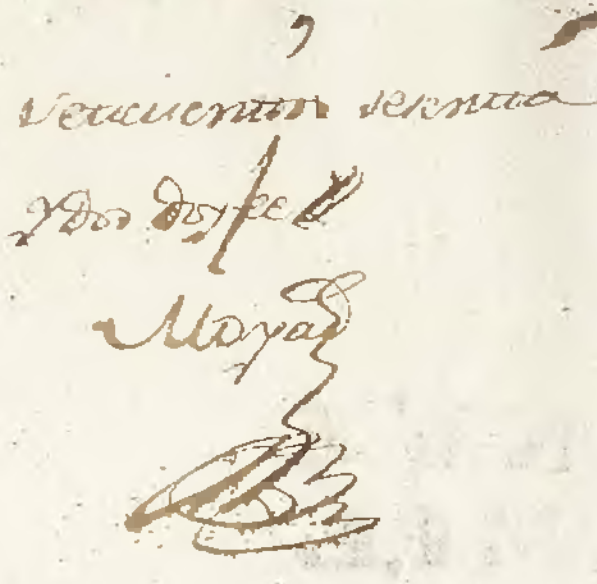 setecientos sesenta
y dos doy fee
Moya